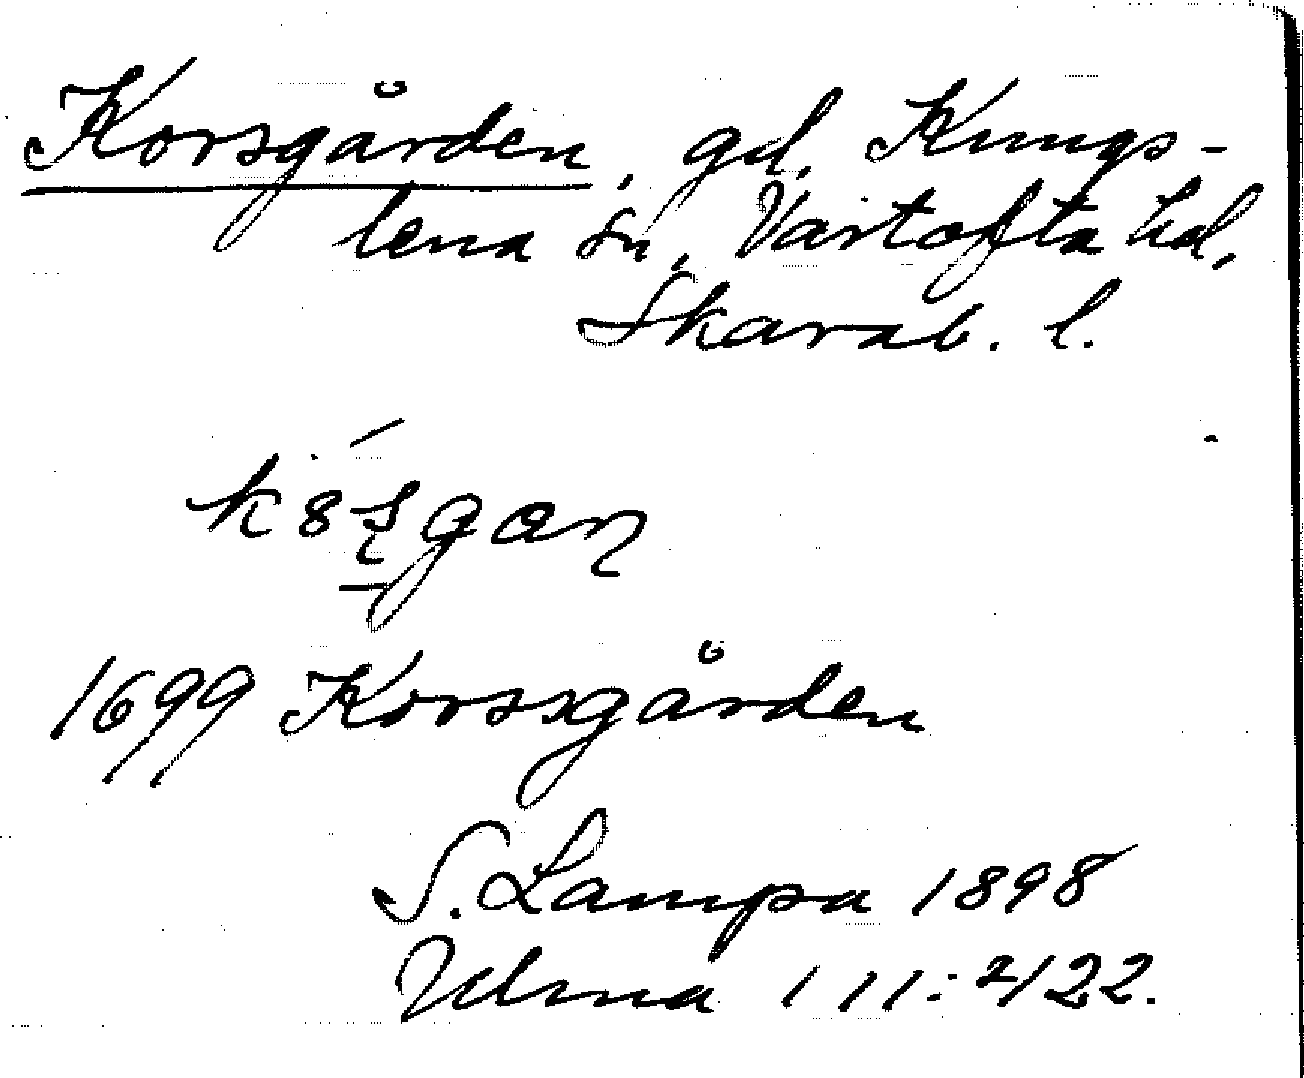 Korsgården, gd, Kungs-
lena sn, Vartofta hd,
Skarab. l.
1699 Korssgården
S. Lampa 1898
Ulma 111:2/22.